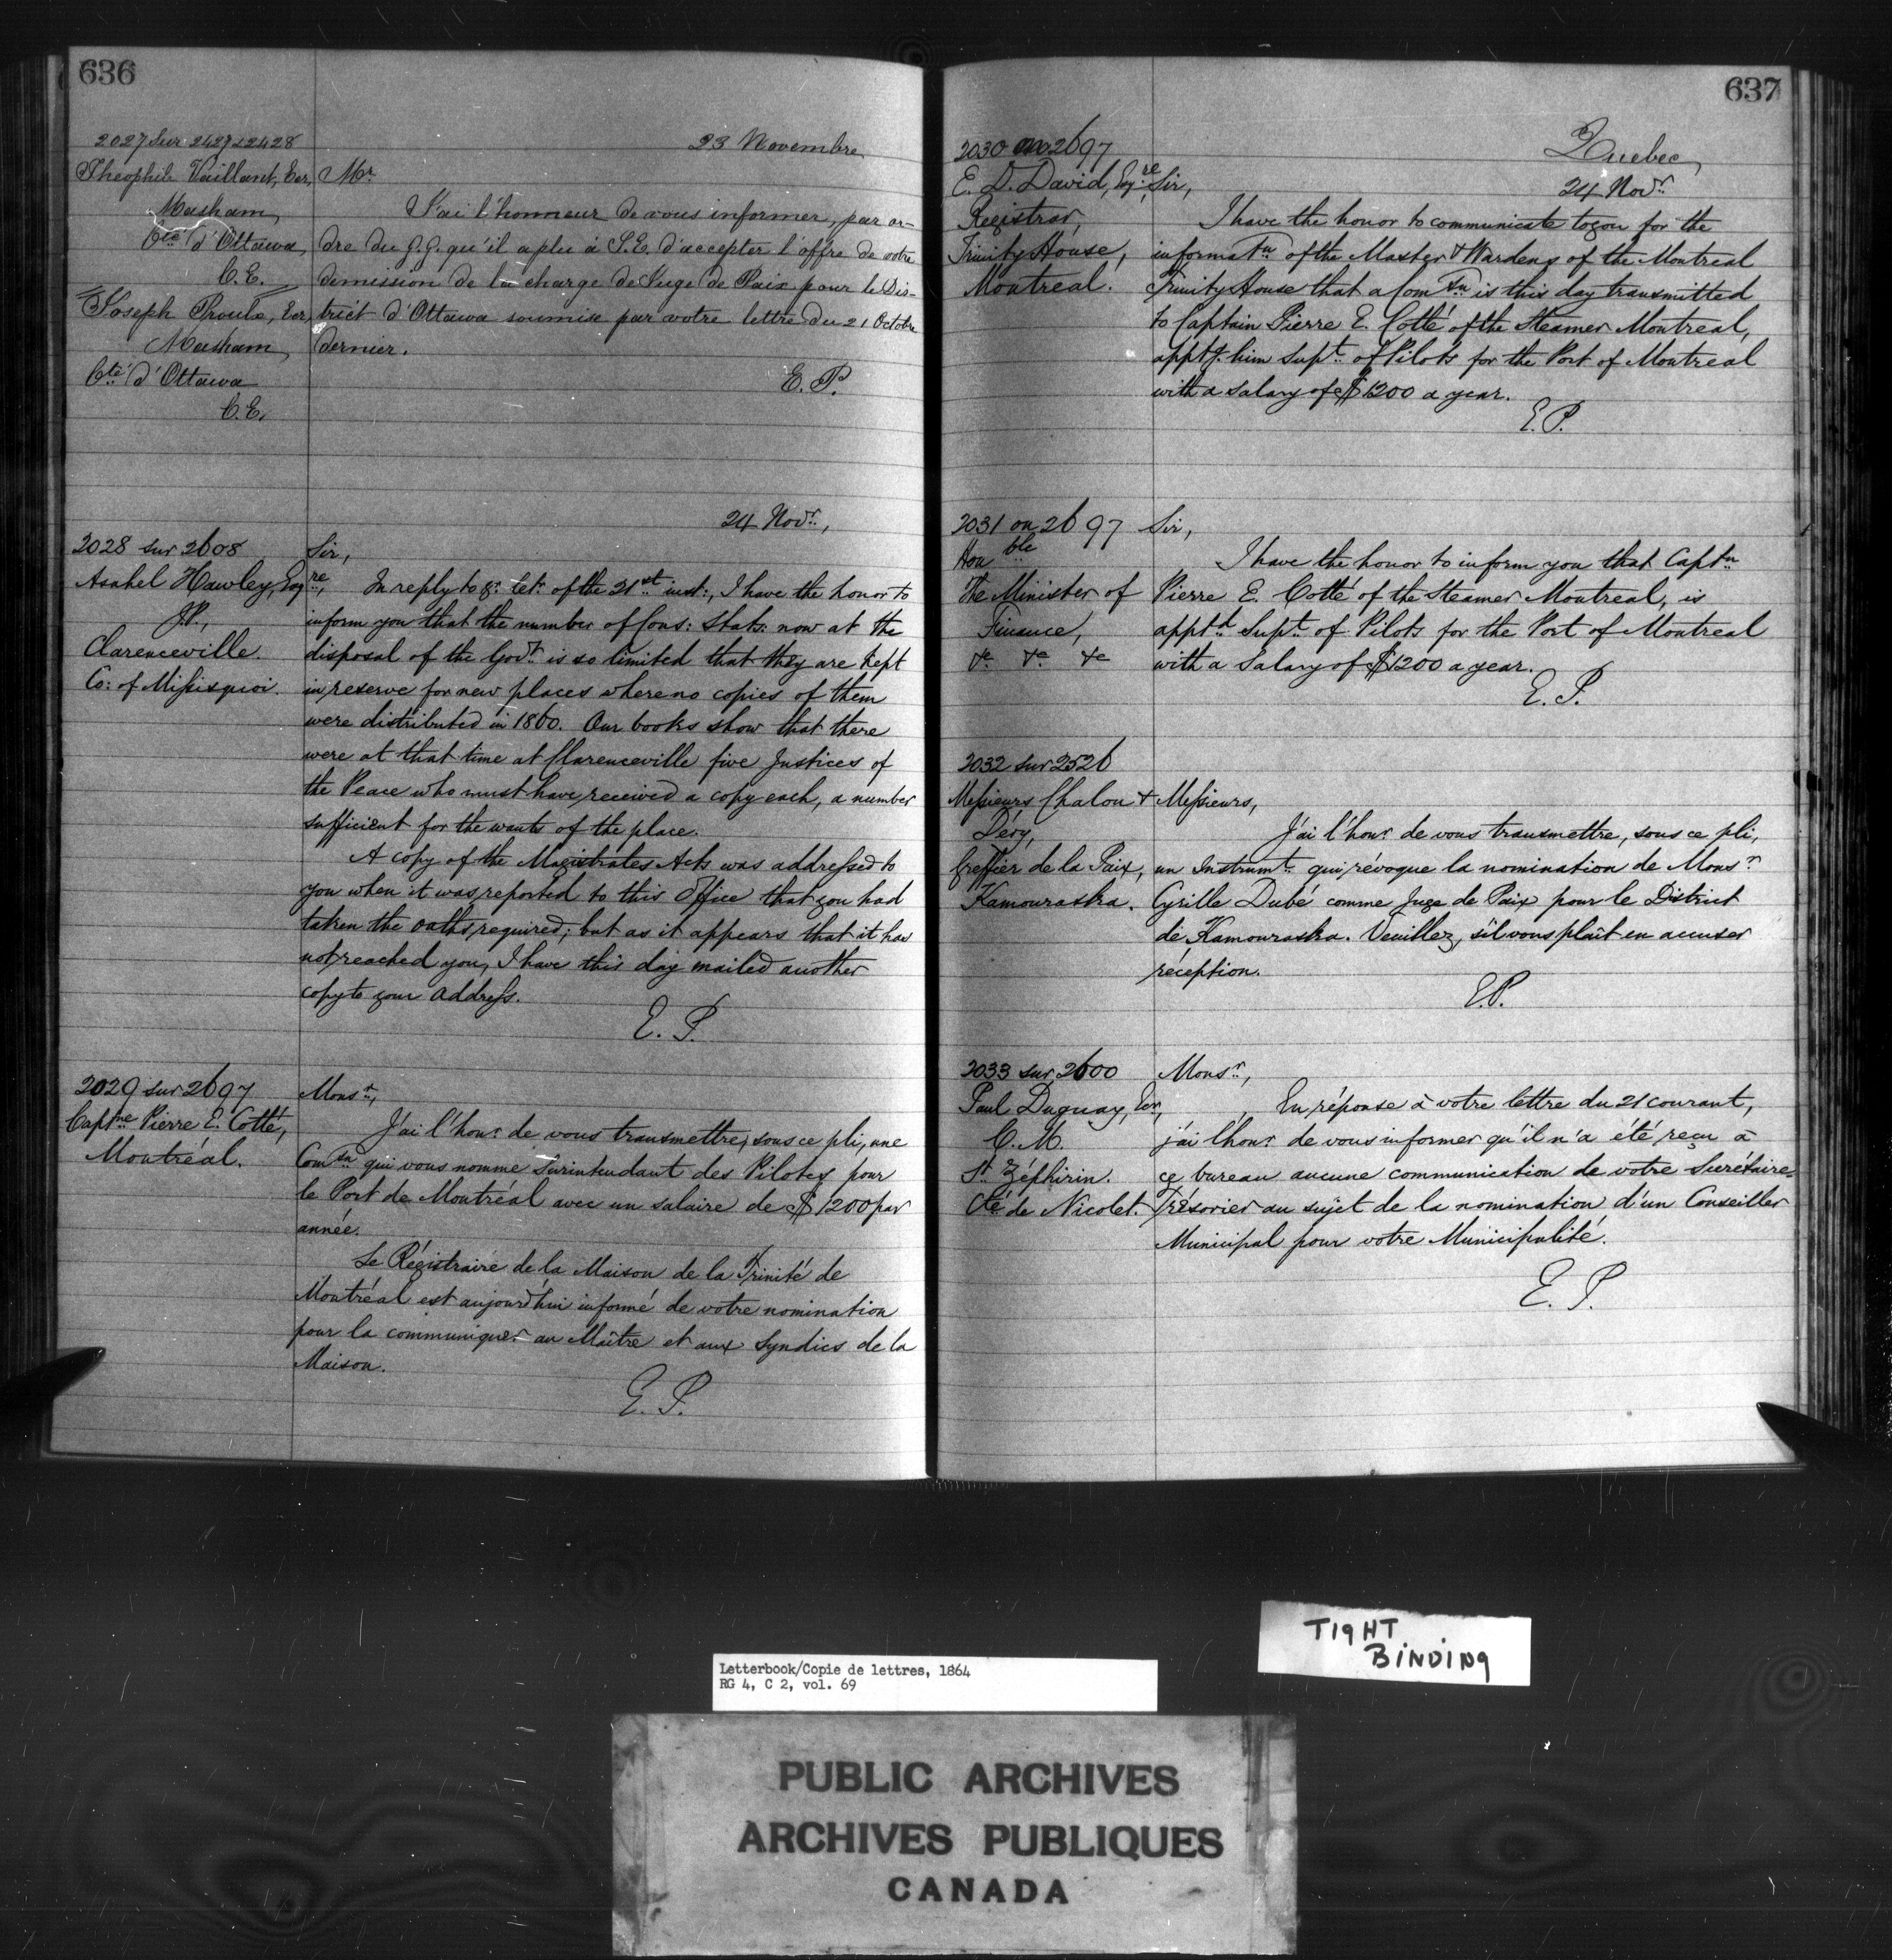 636
23 Novembre
2027 Sur 2427 & 2428
Theophile Vaillant, Ecr,
Masham,
Cté d'Ottawa,
C.E.
Joseph Proulx, Ecr,
Masham,
Cté d'Ottawa
C.E.
Mr.
J'ai l'honneur de vous informer, par or-
dre du G.G. qu'il a plu à S.E. d'accepter l'offre de votre
demission de la charge de Juge de Paix pour le Dis-
trict d'Ottawa soumise par votre lettre du 21 Octobre
dernier.
E. P.
24 Novr.,
2028 sur 2608
Asahel Hawley, Esqre,
J.P.,
Clarenceville.
Co: of Missisquoi.
Sir,
In reply to yr. letr. of the 21st inst:, I have the honor to
inform you that the number of Cons: Stats: now at the
disposal of the Govt. is so limited that they are kept
in reserve for new places where no copies of them
were distributed in 1860. Our books show that there
were at that time at Clarenceville five Justices of
the Peace who must have received a copy each, a number
sufficient for the wants of the place.
A copy of the Magistrates Acts was addressed to
you when it was reported to this Office that you had
taken the oaths required; but as it appears that it has
not reached you, I have this day mailed another
copy to your address.
E. P.
2029 sur 2697
Captne Pierre E. Cotté,
Montréal.
Monsr.,
J'ai l'honr. de vous transmettre, sous ce pli, une
Comsn qui vous nomme Surintendant des Pilotes pour
le Port de Montréal avec un salaire de $1200 par
année.
Le Régistraire de la Maison de la Trinité de
Montréal est aujourd'hui informé de votre nomination
pour la communiquer au Maître et aux Syndics de la
Maison.
E. P.
637
Quebec,
24 Novr.
2030 on 2697
E. D. David, Esqre,
Registrar,
Trinity House,
Montreal.
Sir,
I have the honor to communicate to you for the
informatn of the Master & Wardens of the Montreal
Trinity House that a Comsn is this day transmitted
to Captain Pierre E. Cotté of the Steamer Montreal,
apptg. him Supt. of Pilots for the Port of Montreal
with a salary of $1200 a year.
E. P.
2031 on 2697
Honble
The Minister of
Finance,
&c &c &c
Sir,
I have the honor to inform you that Captn
Pierre E. Cotté of the Steamer Montreal, is
apptd Supt. of Pilots for the Port of Montreal
with a salary of $1200 a year.
E. P.
2032 sur 2526
Messieurs Chalou &
Déry,
Greffier de la Paix,
Kamouraska.
Messieurs,
J'ai l'honr. de vous transmettre, sous ce pli,
un Instrumt. qui révoque la nomination de Monsr
Cyrille Dubé comme Juge de Paix pour le District
de Kamouraska. Veuillez, s'il vous plaît en accuser
réception.
E.P.
2033 sur 2600
Paul Duguay, Ecr,
C. M.
St. Zéphirin.
Cté de Nicolet.
Monsr.,
En réponse à votre lettre du 21 courant,
j'ai l'honr. de vous informer qu'il n'a été reçu à
ce bureau aucune communication de votre Secrétaire=
Trésorier au sujet de la nomination d'un Conseiller
Municipal pour votre Municipalité.
E. P.
TIGHT
BINDING
Letterbook/Copie de lettres, 1864
RG 4, C 2, vol. 69
PUBLIC ARCHIVES
ARCHIVES PUBLIQUES
CANADA